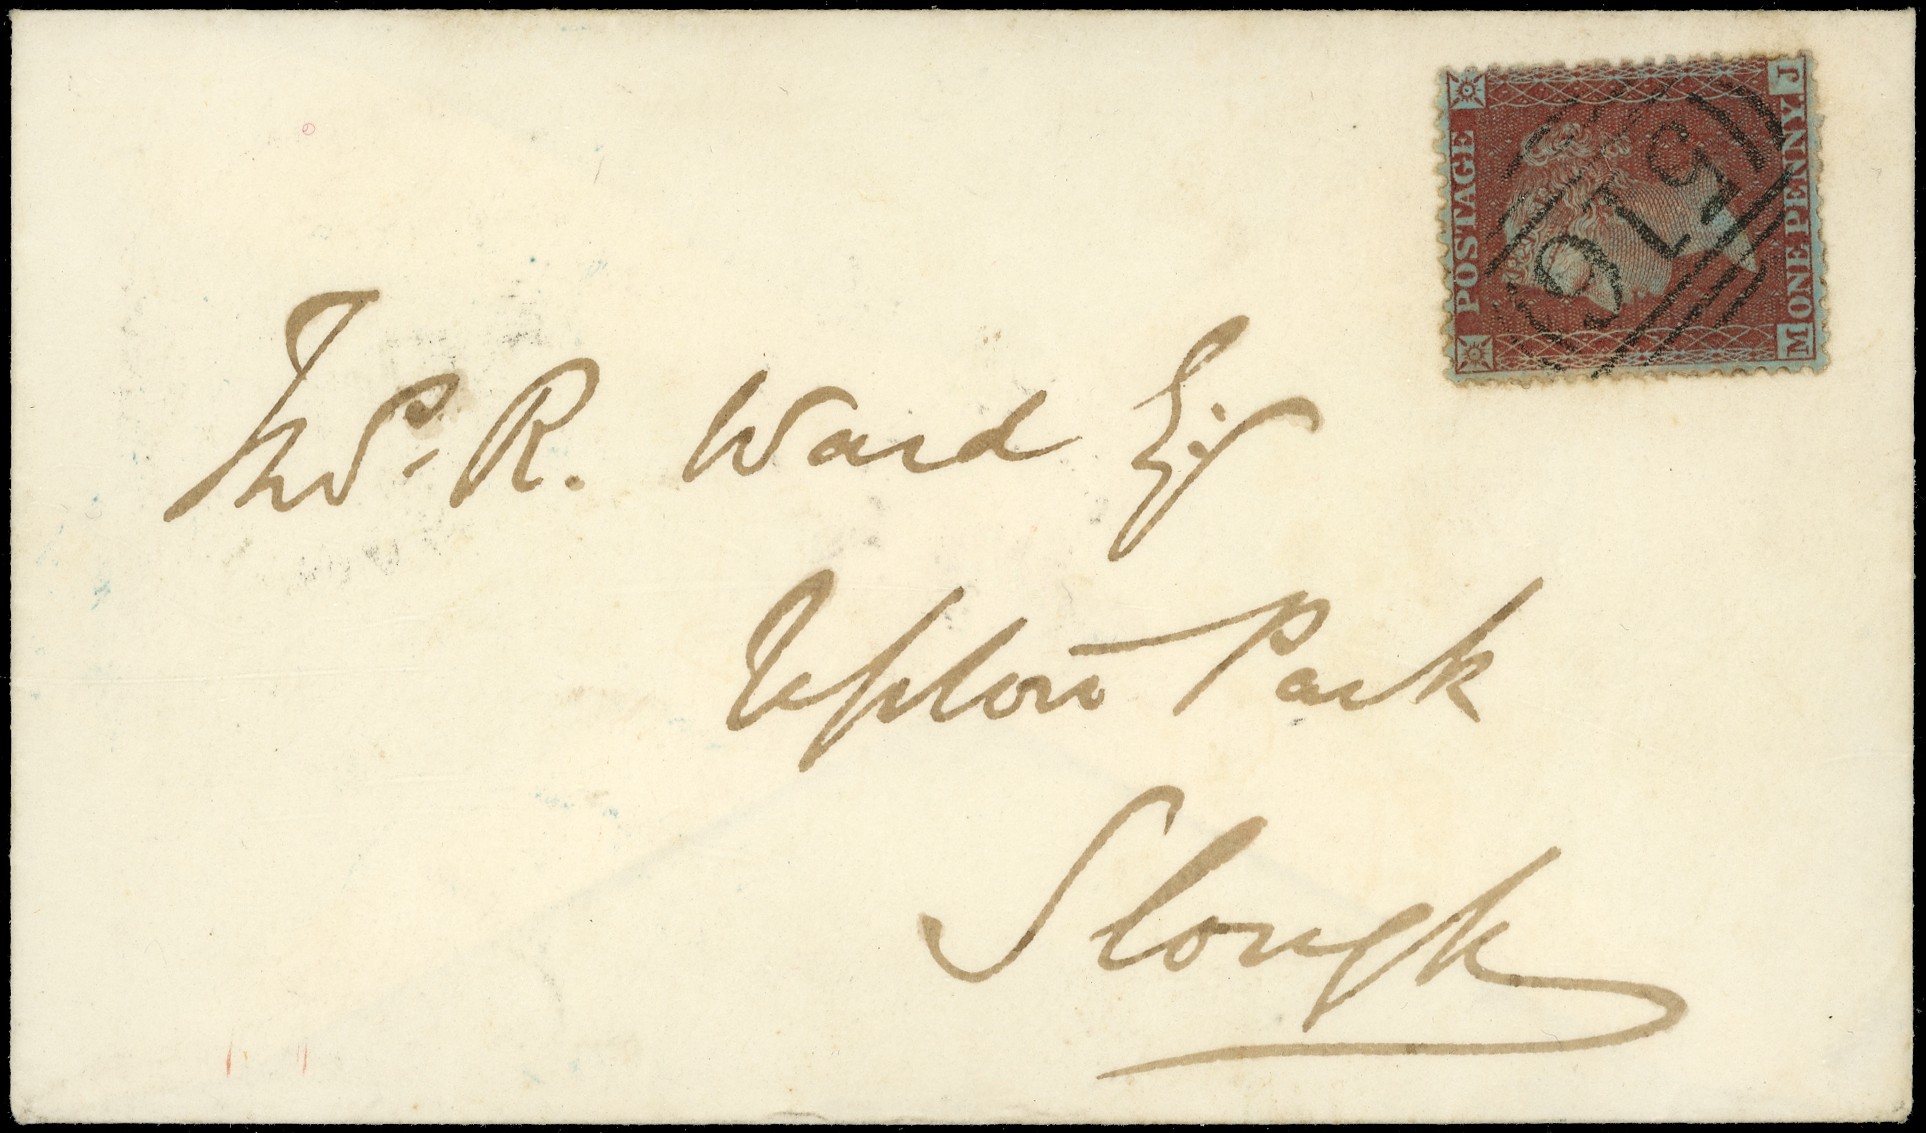 POSTAGE
J
ONE PENNY.
M
516
Thos. R. Ward Esq
Upton Park
Slough